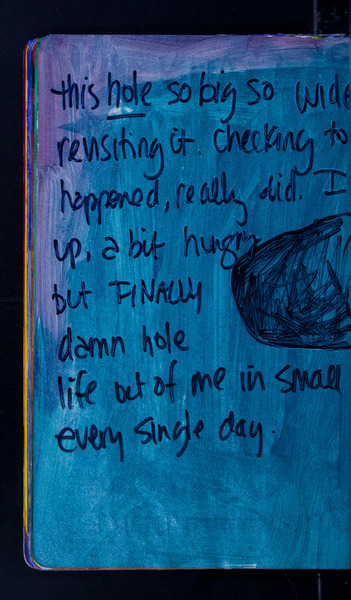 this hole so big so wide
revisiting it. checking to
happened, really did. I
up, a bit hungry
but FINALLY
damn hole
life out of me in small
every single day.